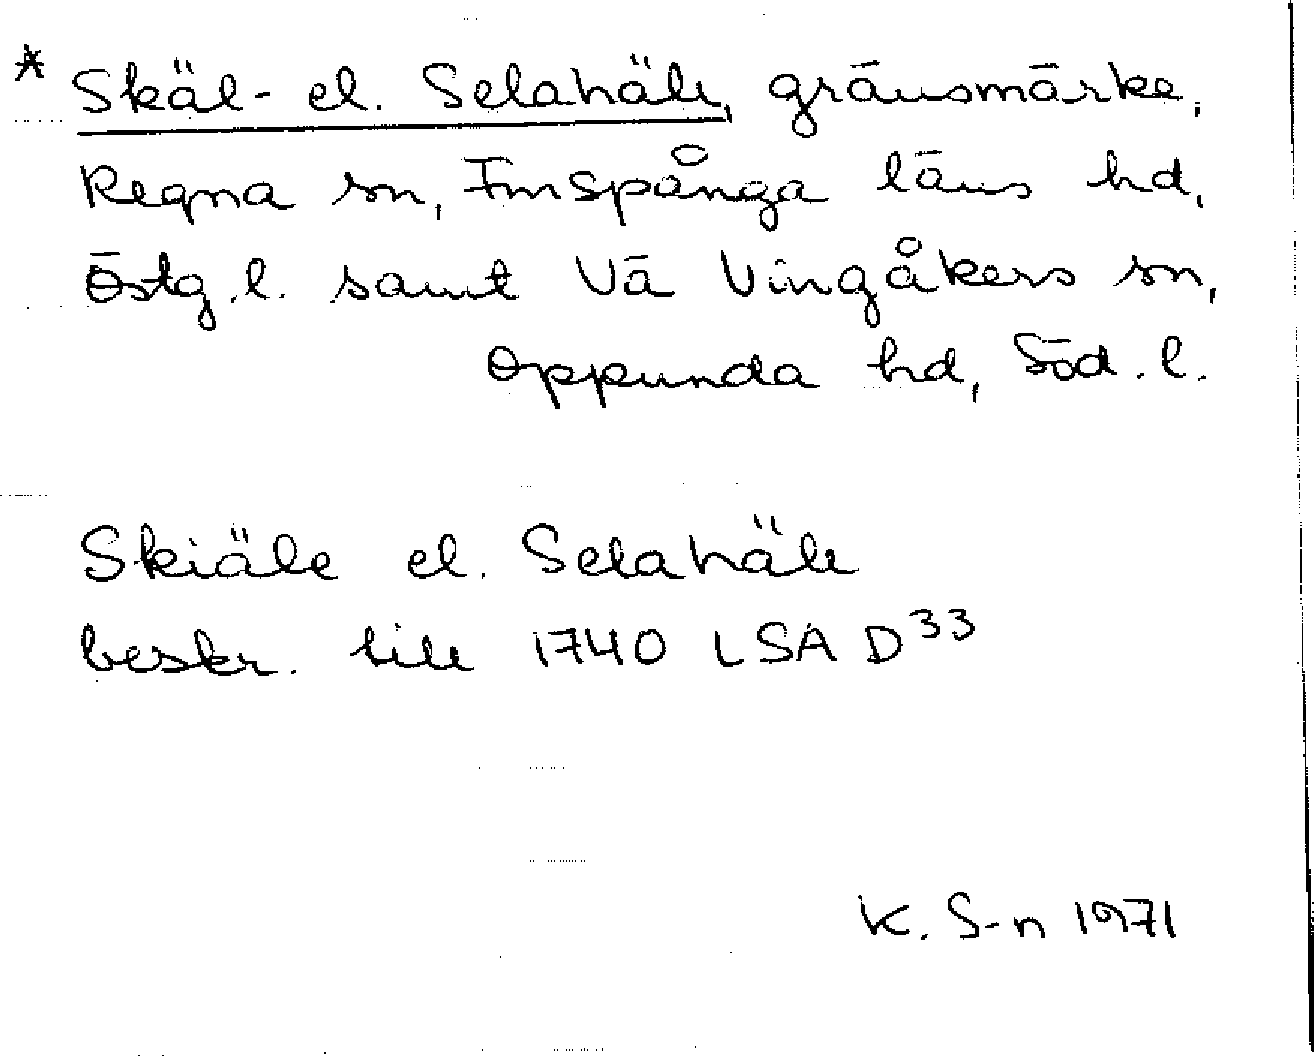 * Skäl- el. Selahäll, gränsmärke,
Regna sn, Finspånga läns hd,
Östg. l. samt Vä Vingåkers sn,
Oppunda hd, Söd. l.
Skiäle el. Selahäll
beskr. till 1740 LSA D33
K. S-n 1971